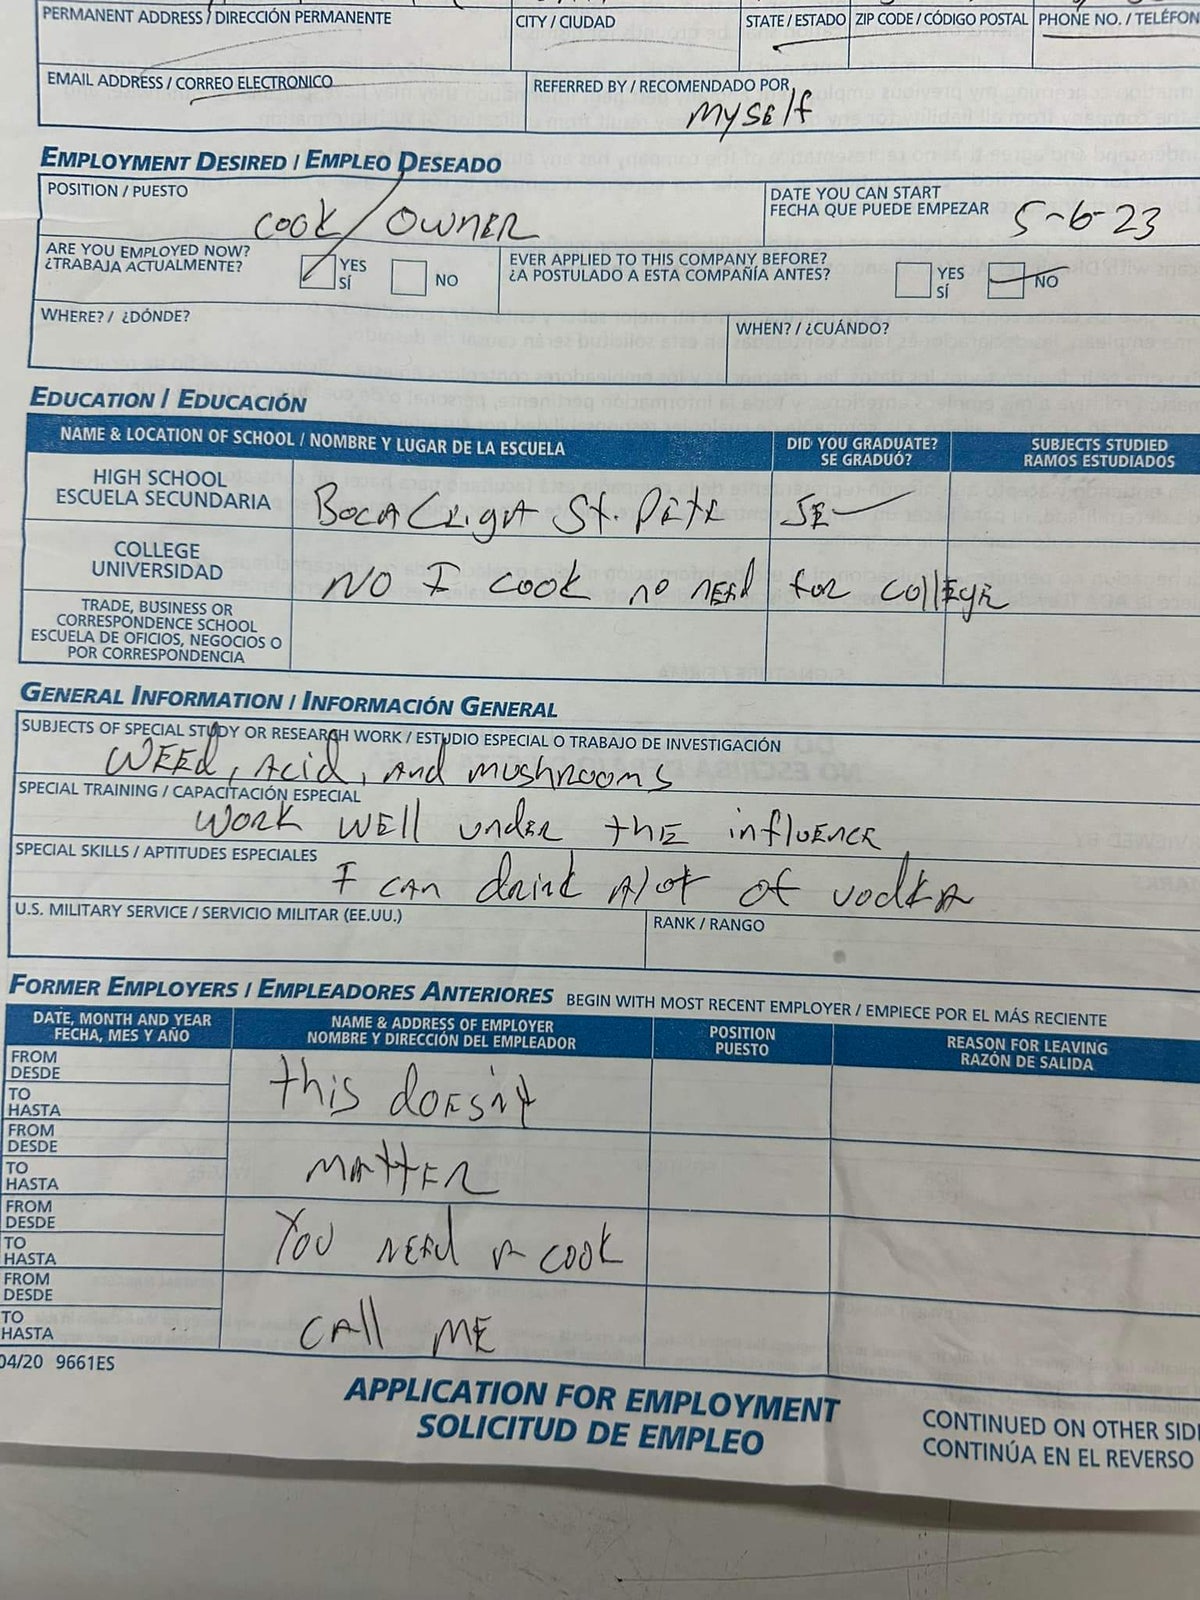 PERMANENT ADDRESS / DIRECCIÓN PERMANENTE
CITY / CIUDAD
STATE / ESTADO
ZIP CODE / CÓDIGO POSTAL
PHONE NO. / TELÉFON
EMAIL ADDRESS / CORREO ELECTRONICO
REFERRED BY / RECOMENDADO POR
MYSElf
EMPLOYMENT DESIRED / EMPLEO DESEADO
POSITION / PUESTO
COOK / OWNER
DATE YOU CAN START
FECHA QUE PUEDE EMPEZAR
5-6-23
ARE YOU EMPLOYED NOW?
¿TRABAJA ACTUALMENTE?
YES
SÍ
NO
EVER APPLIED TO THIS COMPANY BEFORE?
¿A POSTULADO A ESTA COMPAÑÍA ANTES?
YES
SÍ
NO
WHERE? / ¿DÓNDE?
WHEN? / ¿CUÁNDO?
EDUCATION / EDUCACIÓN
NAME & LOCATION OF SCHOOL / NOMBRE Y LUGAR DE LA ESCUELA
DID YOU GRADUATE?
SE GRADUÓ?
SUBJECTS STUDIED
RAMOS ESTUDIADOS
HIGH SCHOOL
ESCUELA SECUNDARIA
BOCA St. PETE
COLLEGE
UNIVERSIDAD
NO I cook no nEEd for collEgE
TRADE, BUSINESS OR
CORRESPONDENCE SCHOOL
ESCUELA DE OFICIOS, NEGOCIOS O
POR CORRESPONDENCIA
GENERAL INFORMATION / INFORMACIÓN GENERAL
SUBJECTS OF SPECIAL STUDY OR RESEARCH WORK / ESTUDIO ESPECIAL O TRABAJO DE INVESTIGACIÓN
WEEd, Acid, And mushrooms
SPECIAL TRAINING / CAPACITACIÓN ESPECIAL
WORK WELL undER thE influENcE
SPECIAL SKILLS / APTITUDES ESPECIALES
I CAN drink Alot of vodkA
U.S. MILITARY SERVICE / SERVICIO MILITAR (EE.UU.)
RANK / RANGO
FORMER EMPLOYERS / EMPLEADORES ANTERIORES BEGIN WITH MOST RECENT EMPLOYER / EMPIECE POR EL MÁS RECIENTE
DATE, MONTH AND YEAR
FECHA, MES Y AÑO
NAME & ADDRESS OF EMPLOYER
NOMBRE Y DIRECCIÓN DEL EMPLEADOR
POSITION
PUESTO
REASON FOR LEAVING
RAZÓN DE SALIDA
FROM
DESDE
this doEsn't
TO
HASTA
FROM
DESDE
MAttER
TO
HASTA
FROM
DESDE
You NEEd A cook
TO
HASTA
FROM
DESDE
CAll ME
TO
HASTA
04/20 9661ES
APPLICATION FOR EMPLOYMENT
SOLICITUD DE EMPLEO
CONTINUED ON OTHER SIDE
CONTINÚA EN EL REVERSO